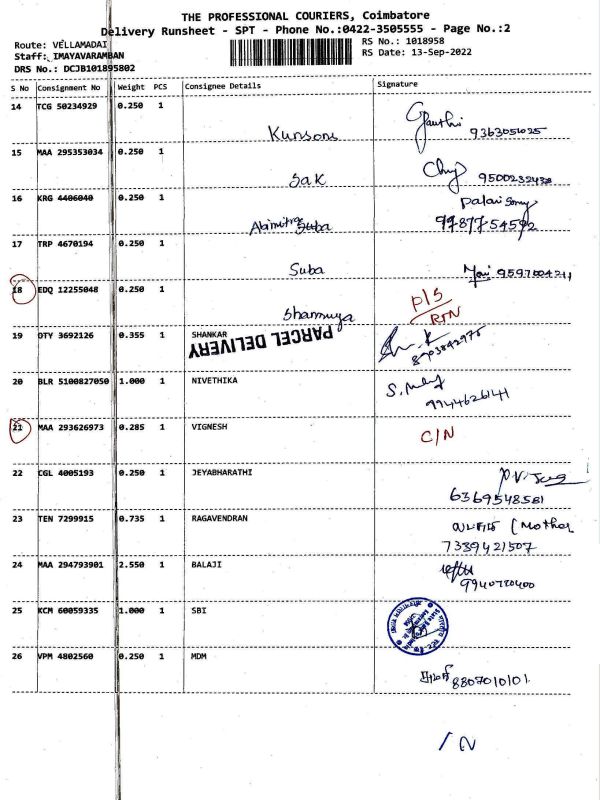 THE PROFESSIONAL COURIERS, Coimbatore
Delivery Runsheet - SPT - Phone No.:0422-3505555 - Page No.:2
Route: VELLAMADAI
RS No.: 1018958
Staff: IMAYAVARAMBAN
RS Date: 13-Sep-2022
DRS No.: DCJB101895802
S No Consignment No Weight PCS Consignee Details Signature
14 TCG 50234929 0.250 1
Kunsons 9363051025
15 MAA 295353034 0.250 1
Sak 9500232438
16 KRG 4406040 0.250 1
Abimitra Suba 9787754592
17 TRP 4670194 0.250 1
Suba 9597004211
18 EDQ 12255048 0.250 1
Shanmuga P/S
RTN
19 OTY 3692126 0.355 1 SHANKAR
PARCEL DELIVERY
20 BLR 5100827050 1.000 1 NIVETHIKA
9944626141
21 MAA 293626973 0.285 1 VIGNESH
C/N
22 CGL 4005193 0.250 1 JEYABHARATHI
6369548581
23 TEN 7299915 0.735 1 RAGAVENDRAN
(Mother
7339421507
24 MAA 294793901 2.550 1 BALAJI
9940720400
25 KCM 60059335 1.000 1 SBI
26 VPM 4802560 0.250 1 MDM
8807010101
/N